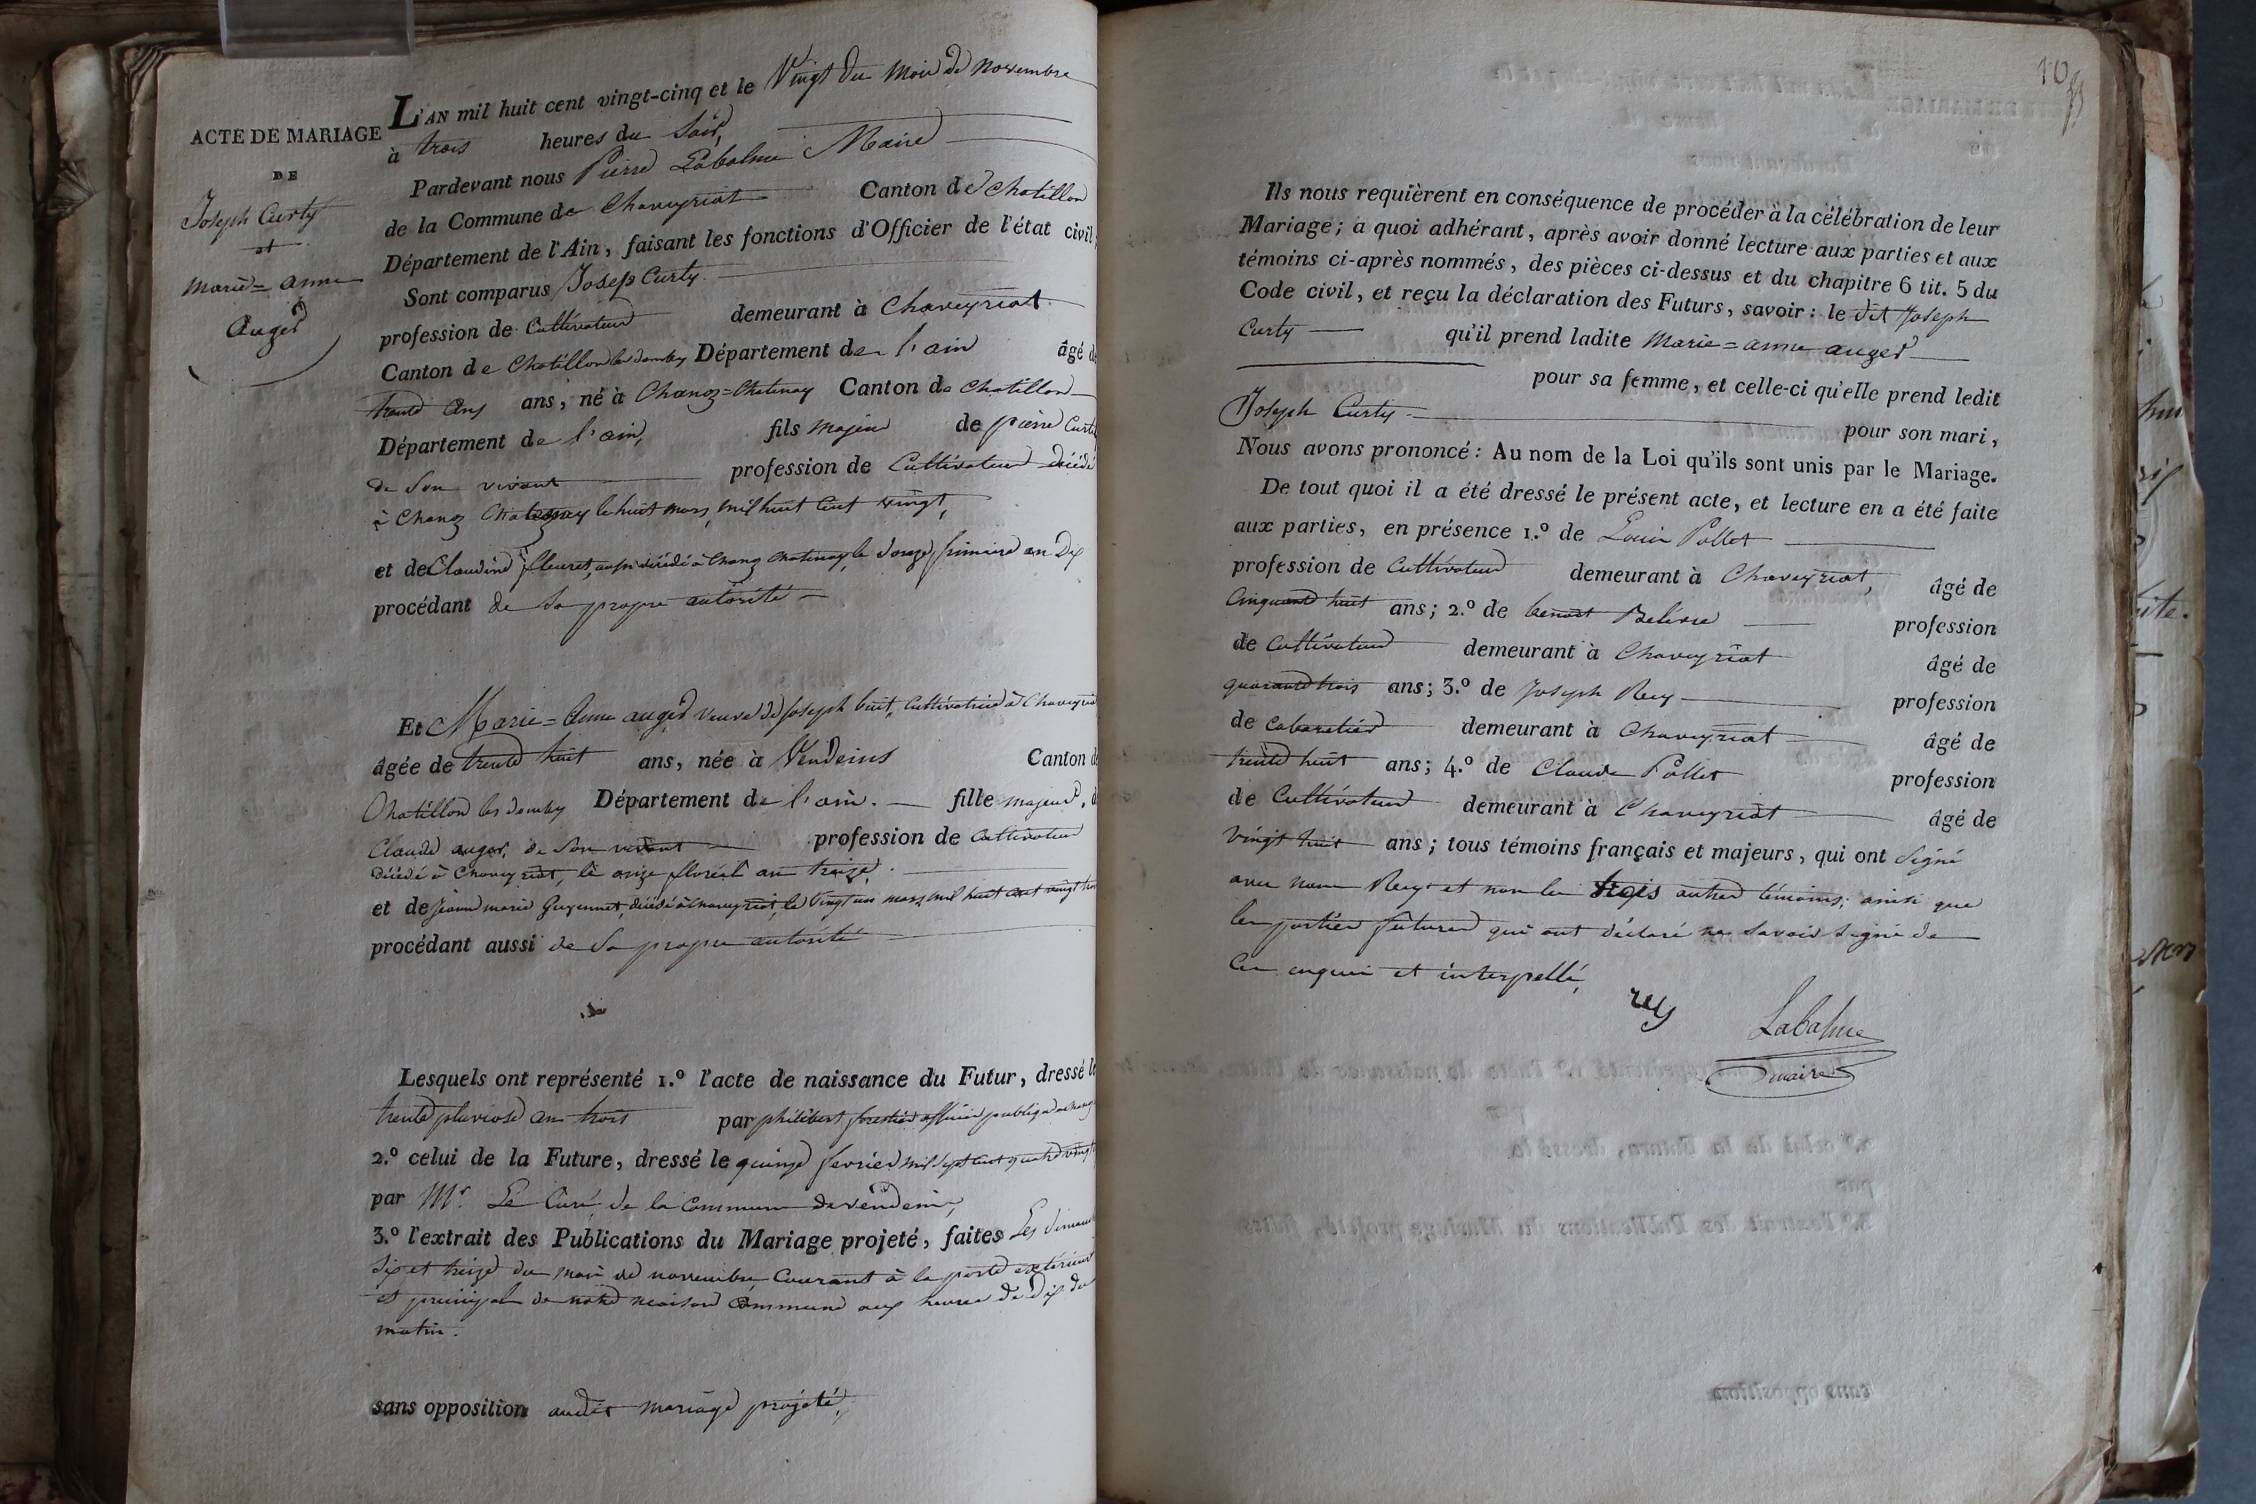 ACTE DE MARIAGE
DE
Joseph Curty
et
Marie=anne
Auger
L'AN mil huit cent vingt-cinq et le Vingt du Mois de Novembre
à trois heures du Soir,
Pardevant nous Pierre Labalme Maire
de la Commune de Chaveyriat Canton de Chatillon
Département de l'Ain, faisant les fonctions d'Officier de l'état civil,
Sont comparus Joseph Curty
profession de Cultivateur demeurant à Chaveyriat
Canton de Chatillon les dombes Département de l'ain âgé de
trente ans ans, né à Chanoz=Chatenay Canton de Chatillon
Département de l'ain, fils majeur de pierre Curty
de Son vivant profession de Cultivateur décédé
à Chanoz Chatenay le huit mars, mil huit Cent vingt,
et de Claudine fleuret, aussi décédé à Chanoz Chatenay, le Douze frimaire an Dix
procédant de Sa propre autorité
Et Marie=Anne auger veuve de Joseph buit, Cultivatrice à Chaveyriat
âgée de trente huit ans, née à Vendeins Canton de
Chatillon les dombes Département de l'ain. fille majeure, de
Claude auger, de Son vivant profession de Cultivateur
décédé à Chaveyriat, le onze floréal an treize.
et de Jeanne marie Guyennet, décédé à Chaveyriat, le Vingt un mars mil huit Cent vingt trois
procédant aussi de Sa propre autorité
Lesquels ont représenté 1.º l'acte de naissance du Futur, dressé le
trente pluviose an trois par philibert forestier officier publique a Chanoz
2.º celui de la Future, dressé le quinze fevrier mil Sept Cent quatre vingt
par Mr. Le Curé de la Commune de vendeins,
3.º l'extrait des Publications du Mariage projeté, faites Les dimanches
Six et treize du mois de novembre Courant à la porte extérieure
et principale de notre maison Commune aux heures de Dix du
matin.
sans opposition audit mariage projeté,
103
Ils nous requièrent en conséquence de procéder à la célébration de leur
Mariage; a quoi adhérant, après avoir donné lecture aux parties et aux
témoins ci-après nommés, des pièces ci-dessus et du chapitre 6 tit. 5 du
Code civil, et reçu la déclaration des Futurs, savoir: le dit Joseph
Curty qu'il prend ladite Marie=anne auger
pour sa femme, et celle-ci qu'elle prend ledit
Joseph Curty pour son mari,
Nous avons prononcé: Au nom de la Loi qu'ils sont unis par le Mariage.
De tout quoi il a été dressé le présent acte, et lecture en a été faite
aux parties, en présence 1.º de Louis Pollet
profession de Cultivateur demeurant à Chaveyriat, âgé de
Cinquante huit ans; 2.º de benoit profession
de Cultivateur demeurant à Chaveyriat âgé de
quarante trois ans; 3.º de Joseph Rey profession
de Cabaretier demeurant à Chaveyriat âgé de
trente huit ans; 4.º de Claude Pollet profession
de Cultivateur demeurant à Chaveyriat âgé de
vingt huit ans; tous témoins français et majeurs, qui ont Signé
avec nous Rey et non les trois autres témoins; ainsi que
les parties futures qui ont déclaré ne Savoir Signé de
Ce enquis et interpellé,
rey
Labalme
maire